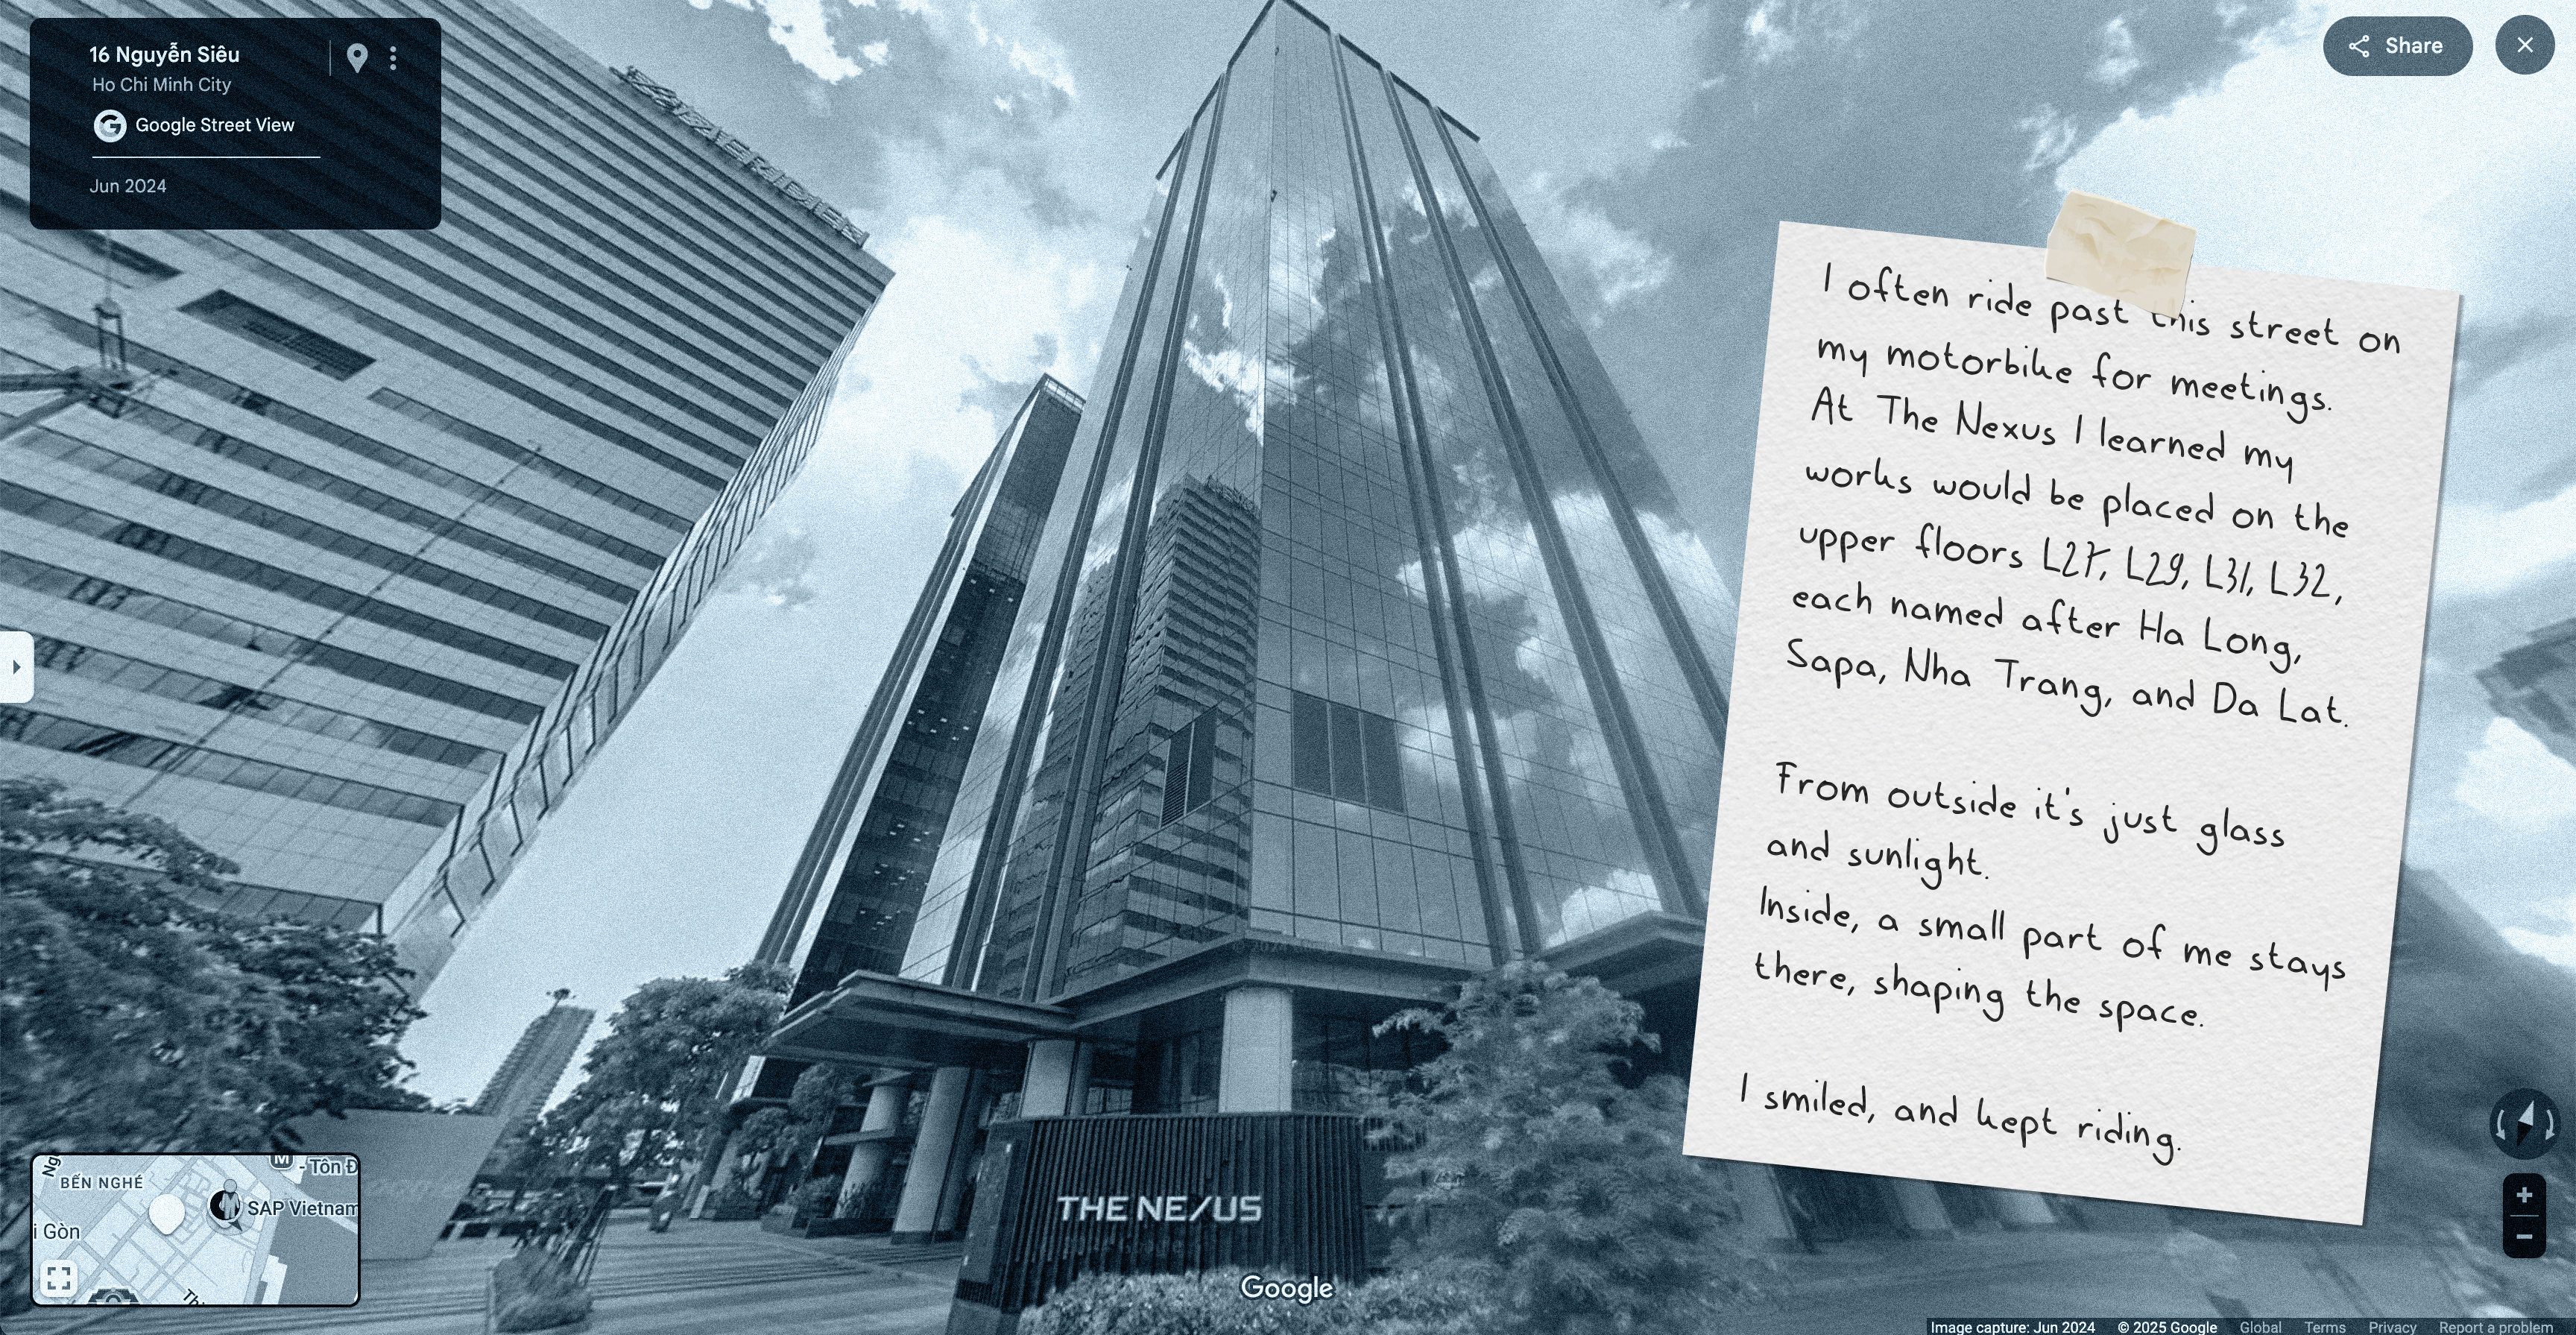 16 Nguyễn Siêu
Ho Chi Minh City
Google Street View
Jun 2024
Share
I often ride past this street on
my motorbike for meetings.
At The Nexus I learned my
works would be placed on the
upper floors L27, L29, L31, L32,
each named after Ha Long,
Sapa, Nha Trang, and Da Lat.
From outside it's just glass
and sunlight.
Inside, a small part of me stays
there, shaping the space.
I smiled, and kept riding.
THE NEXUS
Google
BẾN NGHÉ
M
- Tôn Đ
SAP Vietnam
i Gòn
Ng
Th
Image capture: Jun 2024 © 2025 Google Global Terms Privacy Report a problem